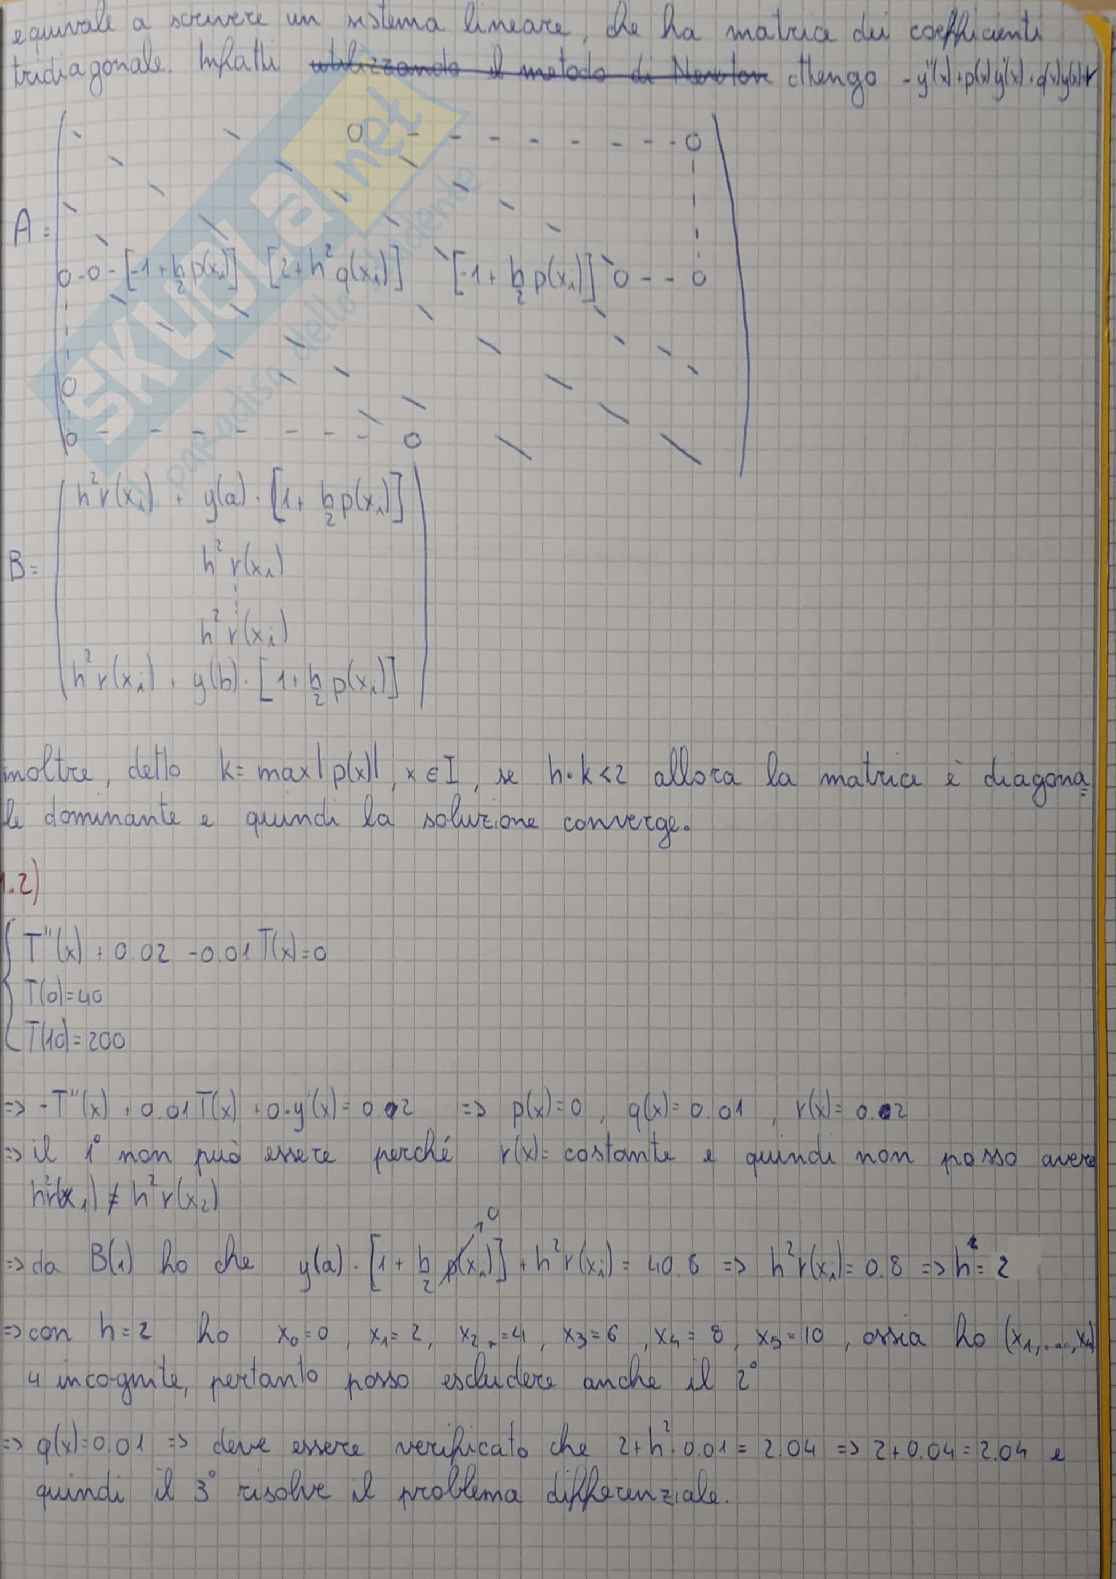 equivale a scrivere un sistema lineare, che ha matrice dei coefficienti
tridiagonale. Infatti utilizzando il metodo di Newton ottengo -y"(x)+p(x)y'(x)+q(x)y(x)=r
0 - - - - - - - 0
A=
0-0-[-1+h/2 p(xᵢ)] [2+h²q(xᵢ)] [-1+h/2 p(xᵢ)] 0 - - 0
0
0 - - - - - - - 0
h²r(xᵢ) + y(a)·[1+h/2 p(xᵢ)]
B= h²r(xᵢ)
⋮
h²r(xᵢ)
h²r(xᵢ) + y(b)·[1+h/2 p(xᵢ)]
inoltre, detto k= max|p(x)|, x∈I, se h·k<2 allora la matrice è diagona=
le dominante e quindi la soluzione converge.
1.2)
T"(x) + 0.02 -0.01T(x)=0
T(0)=40
T(10)=200
=> -T"(x) + 0.01T(x) + 0·y'(x)= 0.02 => p(x)=0, q(x)= 0.01, r(x)= 0.02
=> il 1° non può essere perché r(x)= costante e quindi non posso avere
h²r(x₁) ≠ h²r(x₂)
0
=> da B(1) ho che y(a)·[1+h/2 p(xᵢ)]+h²r(xᵢ)= 40.8 => h²r(xᵢ)= 0.8 => h= 2
=> con h=2 ho x₀=0, x₁=2, x₂=4, x₃=6, x₄=8, x₅=10, ossia ho (x₁,...,x₄)
4 incognite, pertanto posso escludere anche il 2°
=> q(x)=0.01 => deve essere verificato che 2+h²·0.01= 2.04 => 2+0.04=2.04 e
quindi il 3° risolve il problema differenziale.
SKUOLA.net